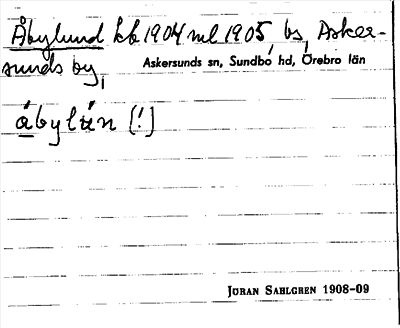 Åbylund kb 1904 ml 1905 bs, Asker-
sunds by,
Askersunds sn, Sundbo hd, Örebro län
åbylún [!]
JÖRAN SAHLGREN 1908-09